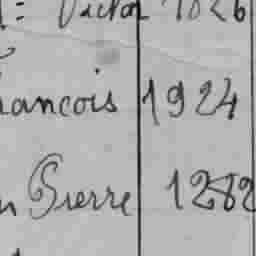 : Victor 1826
ancois 1924
n Pierre 1282